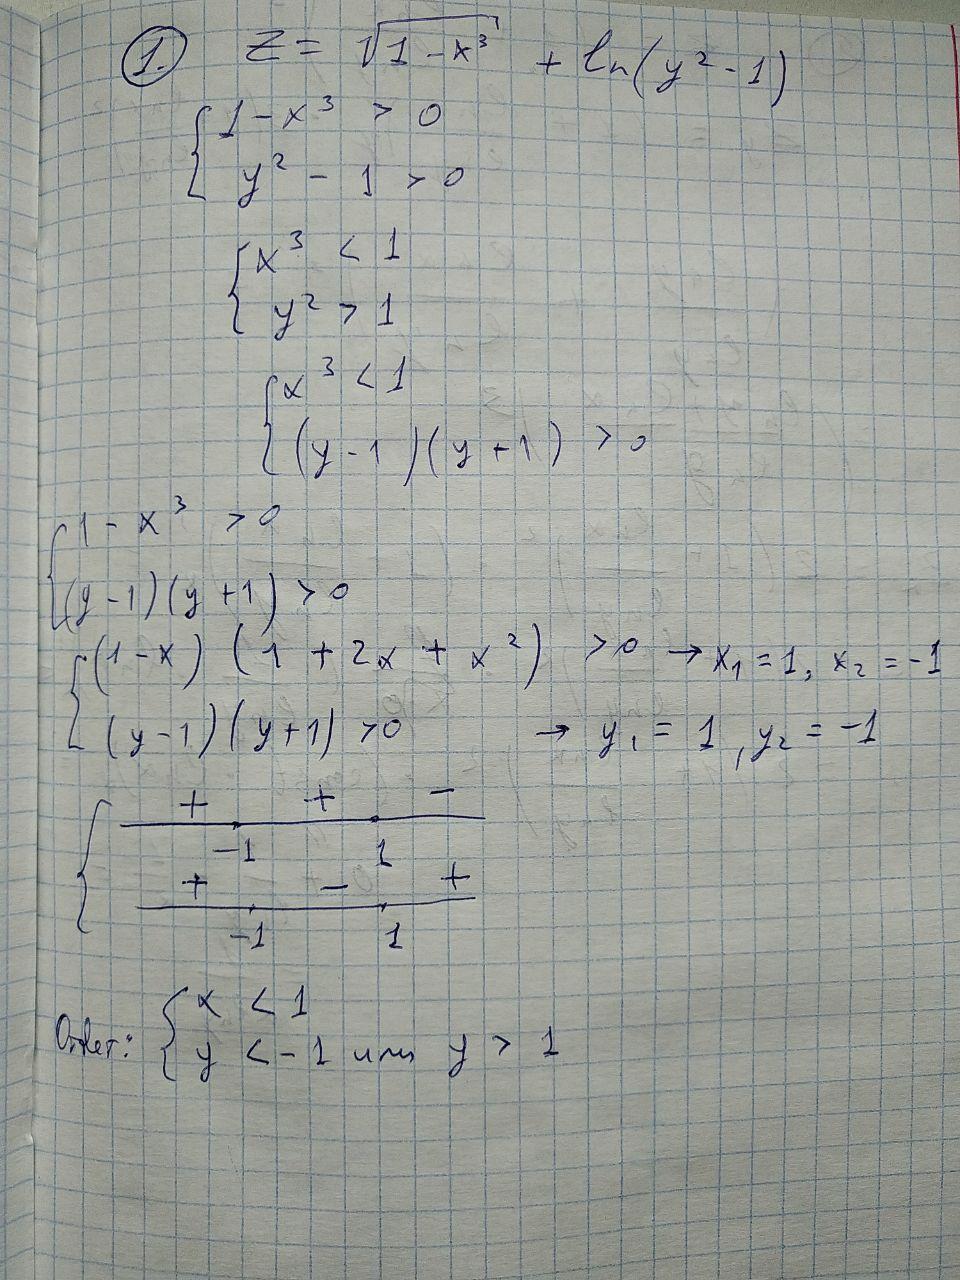 1. z = √(1 - x³) + ln(y² - 1)
{ 1 - x³ > 0
y² - 1 > 0
{ x³ < 1
y² > 1
{ x³ < 1
(y - 1)(y + 1) > 0
{ 1 - x³ > 0
(y - 1)(y + 1) > 0
{ (1 - x) (1 + 2x + x²) > 0 → x₁ = 1, x₂ = -1
(y - 1)(y + 1) > 0 → y₁ = 1, y₂ = -1
{ + + -
-1 1
+ - +
-1 1
Ответ: { x < 1
y < -1 или y > 1